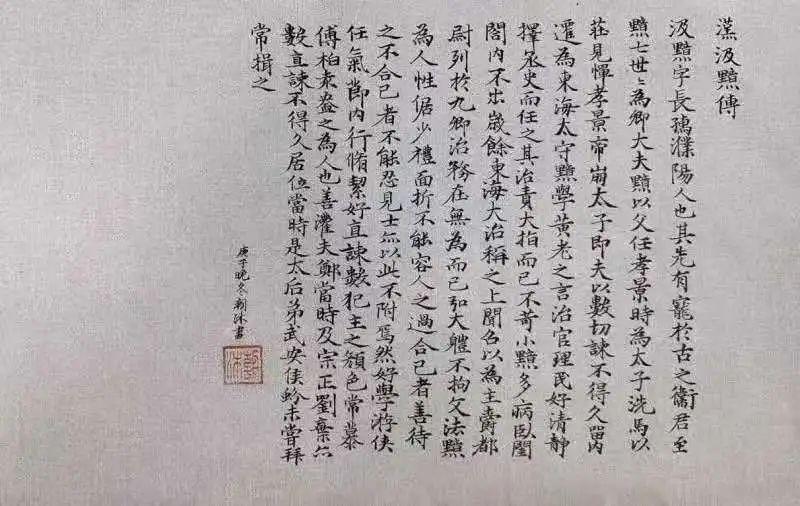 漢汲黯傳
汲黯字長孺濮陽人也其先有寵於古之衛君至
黯七世〻為卿大夫黯以父任孝景時為太子洗馬以
莊見憚孝景帝崩太子即夫以數切諫不得久留內
遷為東海太守黯學黃老之言治官理民好清靜
擇丞史而任之其治責大指而已不苛小黯多病臥閨
閤內不出歲餘東海大治稱之上聞召以為主爵都
尉列於九卿治務在無為而已弘大體不拘文法黯
為人性倨少禮面折不能容人之過合己者善待
之不合己者不能忍見士亦以此不附焉然好學游俠
任氣節內行脩絜好直諫數犯主之顏色常慕
傅柏袁盎之為人也善灌夫鄭當時及宗正劉棄六
數直諫不得久居位當時是太后弟武安侯蚡未嘗拜
常揖之
庚子晚冬 沐書